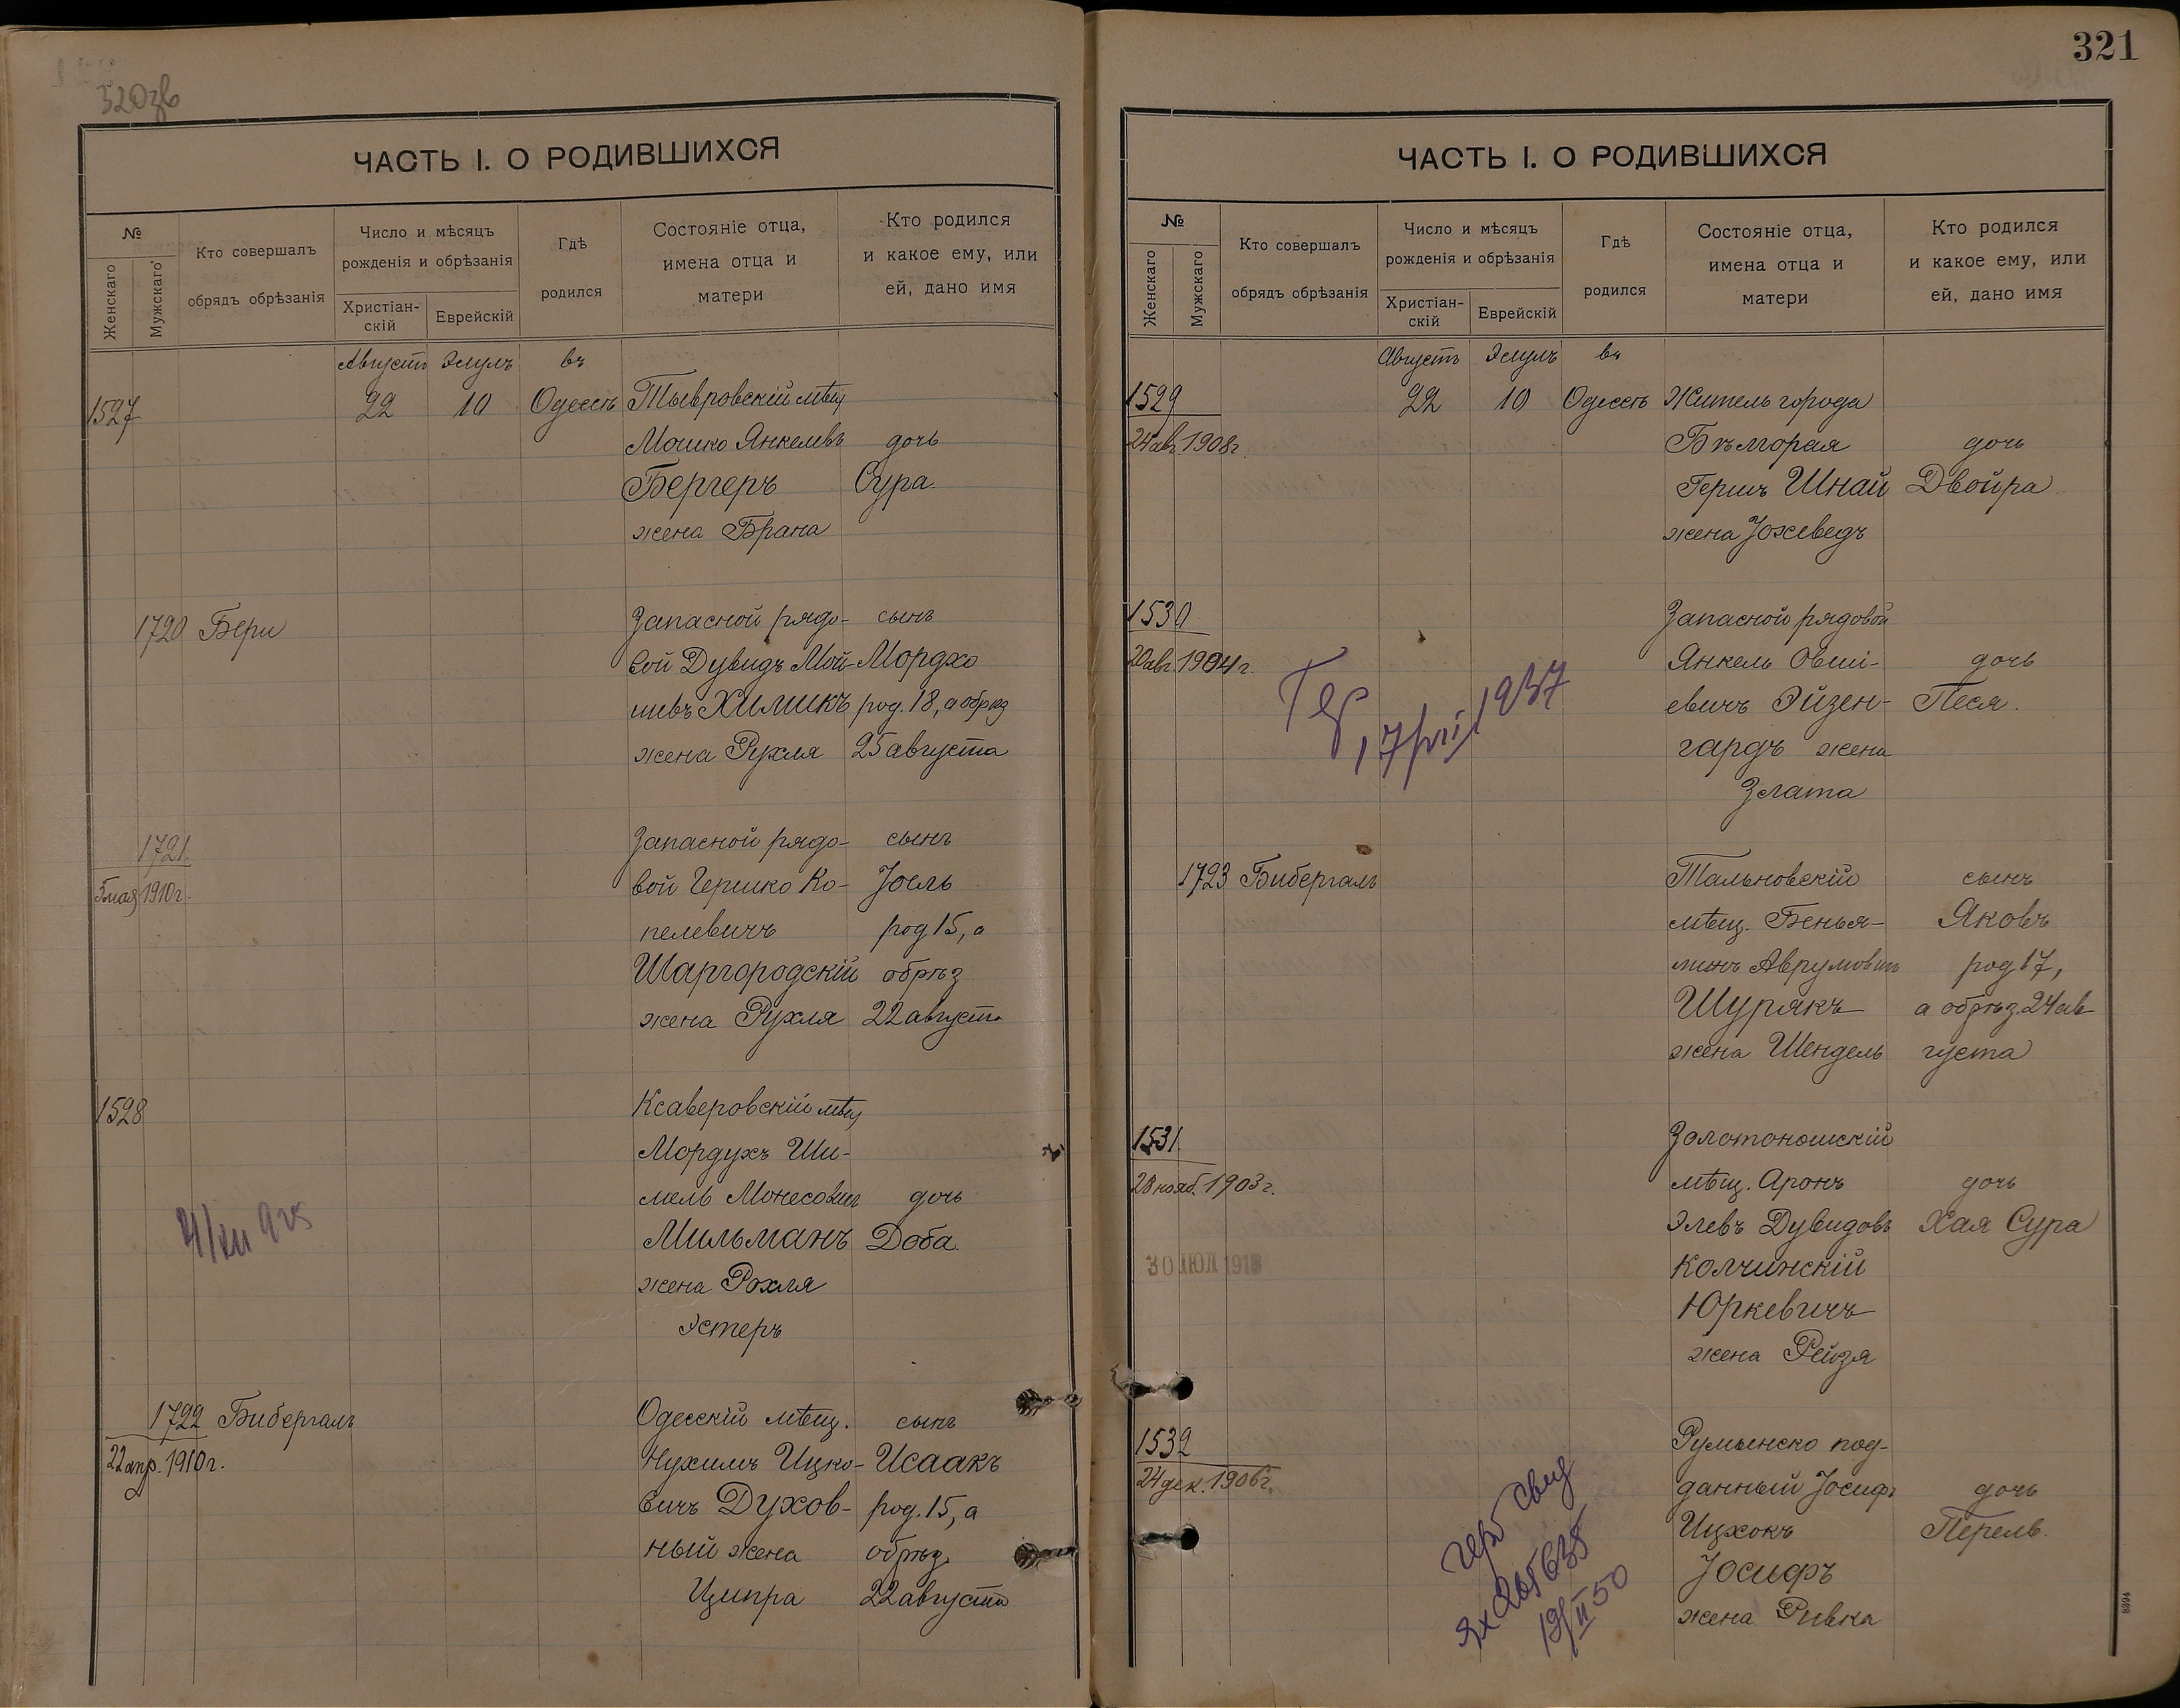 320зв
ЧАСТЬ I. О РОДИВШИХСЯ
№
Женскаго
Мужскаго
Кто совершалъ
обрядъ обрѣзанія
Число и мѣсяцъ
рожденія и обрѣзанія
Христіан-
скій
Еврейскій
Гдѣ
родился
Состояніе отца,
имена отца и
матери
Кто родился
и какое ему, или
ей, дано имя
Августъ Элулъ въ
1527 22 10 Одессѣ Тывровскій мѣщ
Мошко Янкелевъ дочь
Бергеръ Сура.
жена Брана
1720 Бери Запасной рядо- сынъ
вой Дувидъ Мой- Мордхо
шивъ Хиликъ род. 18, а обрѣз
жена Рухля 25 августа
1721 Запасной рядо- сынъ
5 мая 1910 г. вой Гершко Ко- Іоель
пелевичъ род 15, а
Шаргородскій обрѣз
жена Рухля 22 августа
1528 Ксаверовскій мѣщ
Мордухъ Ши-
мель Монесович дочь
Мильманъ Доба.
жена Рохля
Эстеръ
1722 Бибергалъ Одесскій мѣщ. сынъ
22 апр. 1910 г. Нухимъ Ицко- Исаакъ
вичъ Духов- род. 15, а
ный жена обрѣз.
Ципра 22 августа
321
ЧАСТЬ I. О РОДИВШИХСЯ
№
Женскаго
Мужскаго
Кто совершалъ
обрядъ обрѣзанія
Число и мѣсяцъ
рожденія и обрѣзанія
Христіан-
скій
Еврейскій
Гдѣ
родился
Состояніе отца,
имена отца и
матери
Кто родился
и какое ему, или
ей, дано имя
Августъ Элулъ въ
1529 22 10 Одессѣ Житель города
24 авг. 1908 г. Бѣлгорая дочь
Гершъ Шнай Двойра
жена Іохеведъ
1530 Запасной рядовой
20 авг 1904 г. Янкель Овши- дочь
евичъ Эйзен- Песя.
гардъ жена
Злата
1937
1723 Бибергалъ Тальновскій сынъ
мѣщ. Бенья- Яковъ
минъ Аврумовичъ род 17,
Шурякъ а обрѣз. 24 ав
жена Шендель густа
1531. Золотоношскій
28 нояб. 1903 г. мѣщ. Аронъ дочь
Элевъ Дувидовъ Хая Сура
30 ІЮЛ 1918 Колчинскій
Юркевичъ
жена Рейзя
1532 Румынско под-
24 дек. 1906 г. данный Іосифъ дочь
Ицхокъ Перель.
Іосифъ
жена Ривка
свид
19/II 50
8394